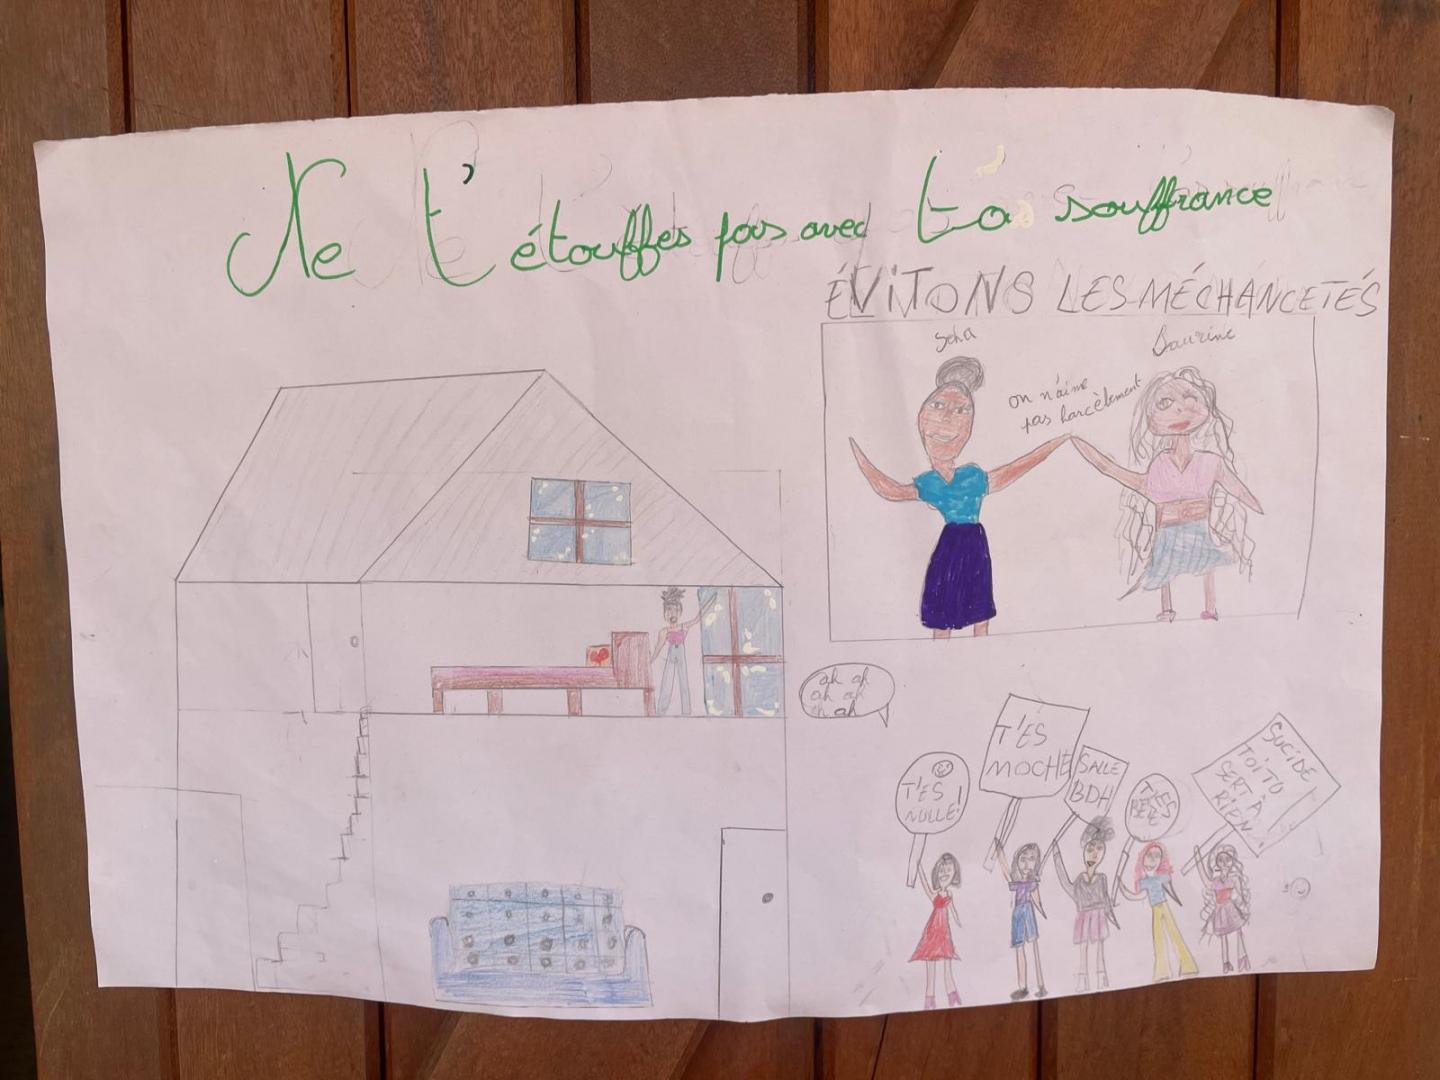 Ne t'étouffes pas avec ta souffrance
ÉViTONS LES MÉCHANCETÉS
Seha
Laurine
on n'aime
pas harcèlement
ah ah
ah ah
ah ah
T'ES
NULLE!
T'ES
MOCHE
SALLE
BDH
T'ES
BÊTE
SUCIDE
TOI TU
SERT À
RIEN